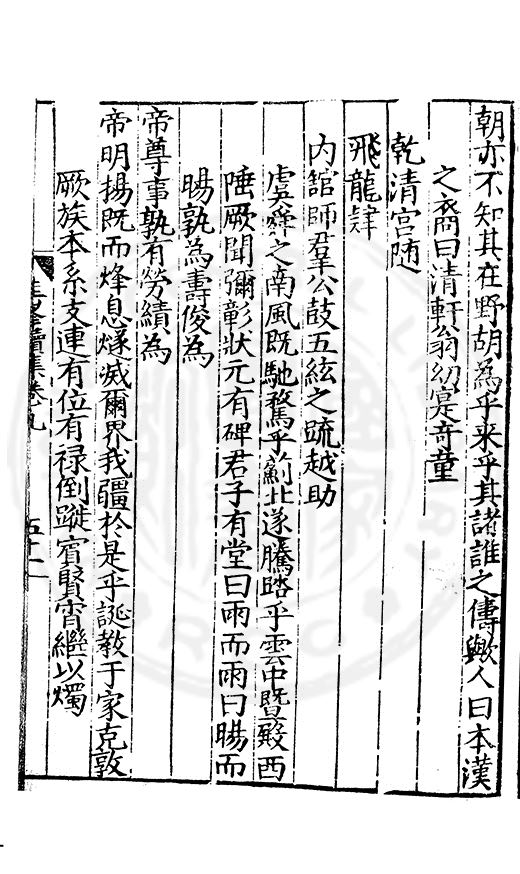 朝亦不知其在野胡為乎来乎其諸誰之儔歟人曰本漢
之裔曰清軒翁幼寔竒童
乾清宮随
飛龍肆
内舘師羣公鼓五絃之䟽越助
虞舜之南風既馳騖乎薊北遂騰踏乎雲中暨殿西
陲厥聞彌彰狀元有碑君子有堂曰雨而雨曰暘而
暘孰為壽俊為
帝尊事孰有勞績為
帝明揚既而烽息燧滅爾界我疆於是乎誕教于家克敦
厥族本系支連有位有禄倒蹝賔賢宵繼以燭
續集卷九
五十二